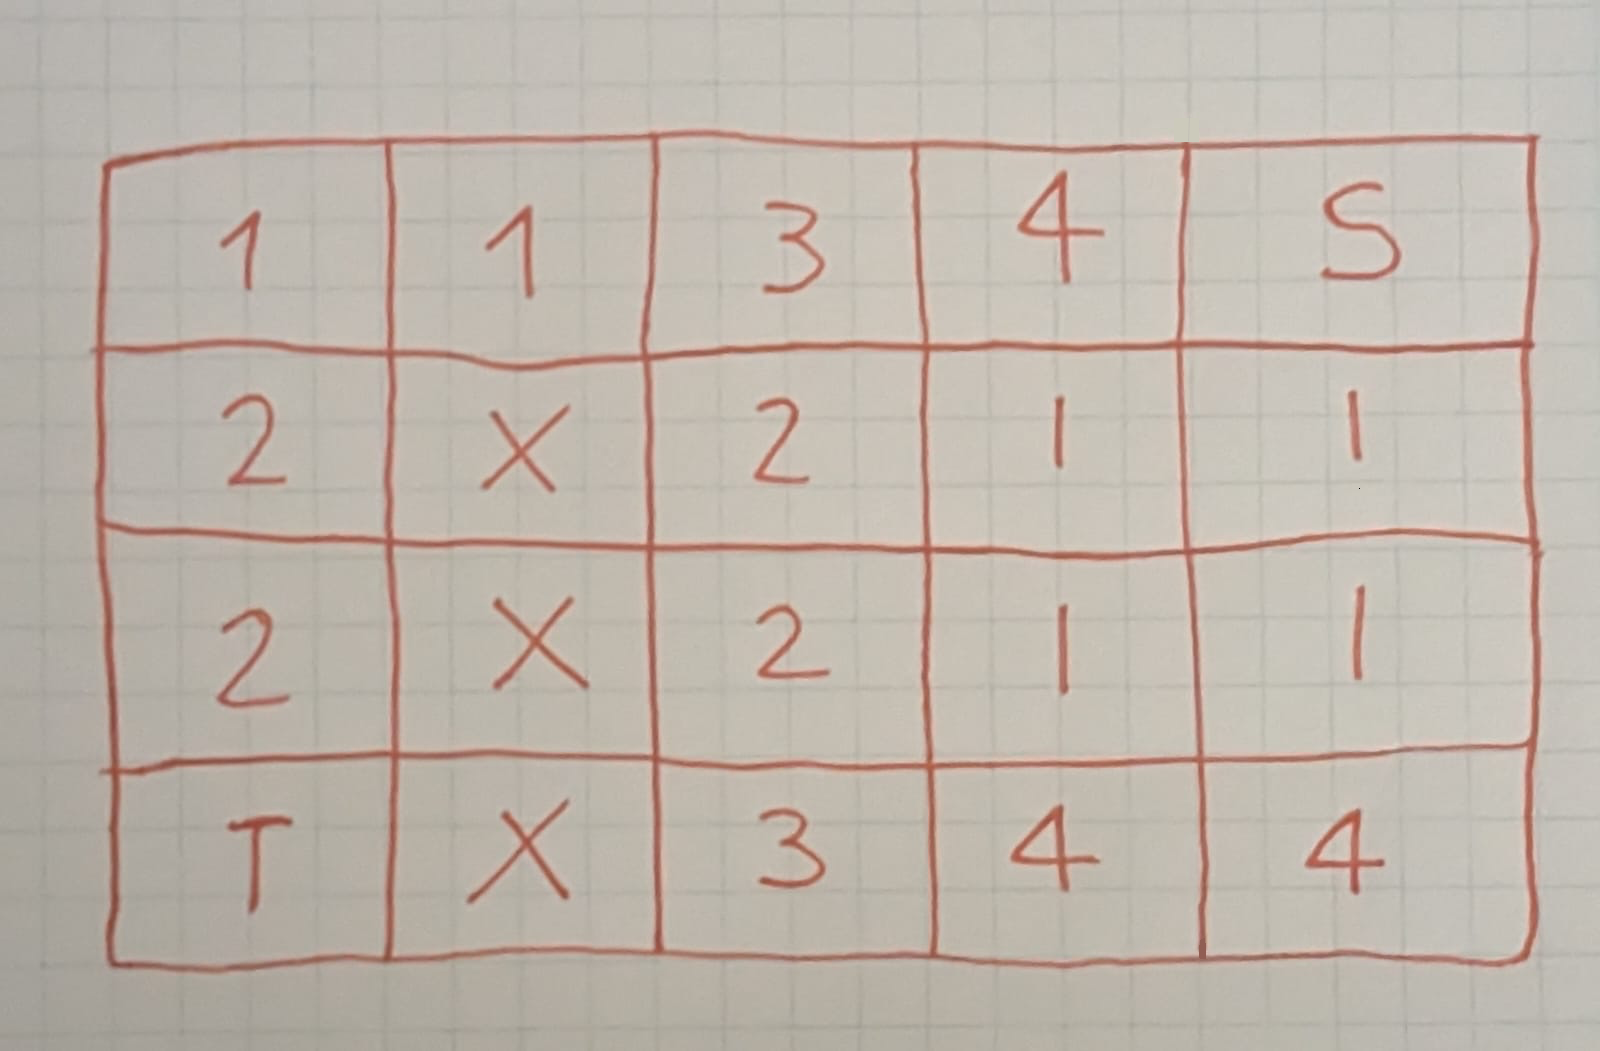 1 1 3 4 S
2 X 2 1 1
2 X 2 1 1
T X 3 4 4